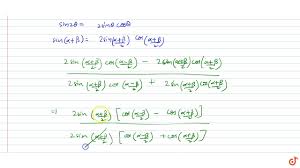 sin2θ = 2sinθ cosθ
sin(α+β) = 2sin(α+β)/2 cos(α+β)/2
2sin(α+β)/2 cos(α-β)/2 - 2sin(α+β)/2 cos(α+β)/2
2sin(α+β)/2 cos(α-β)/2 + 2sin(α+β)/2 cos(α+β)/2
⇒ 2sin (α+β)/2 [cos(α-β)/2 - cos(α+β)/2]
2sin (α+β)/2 [cos(α-β)/2 + cos(α+β)/2]